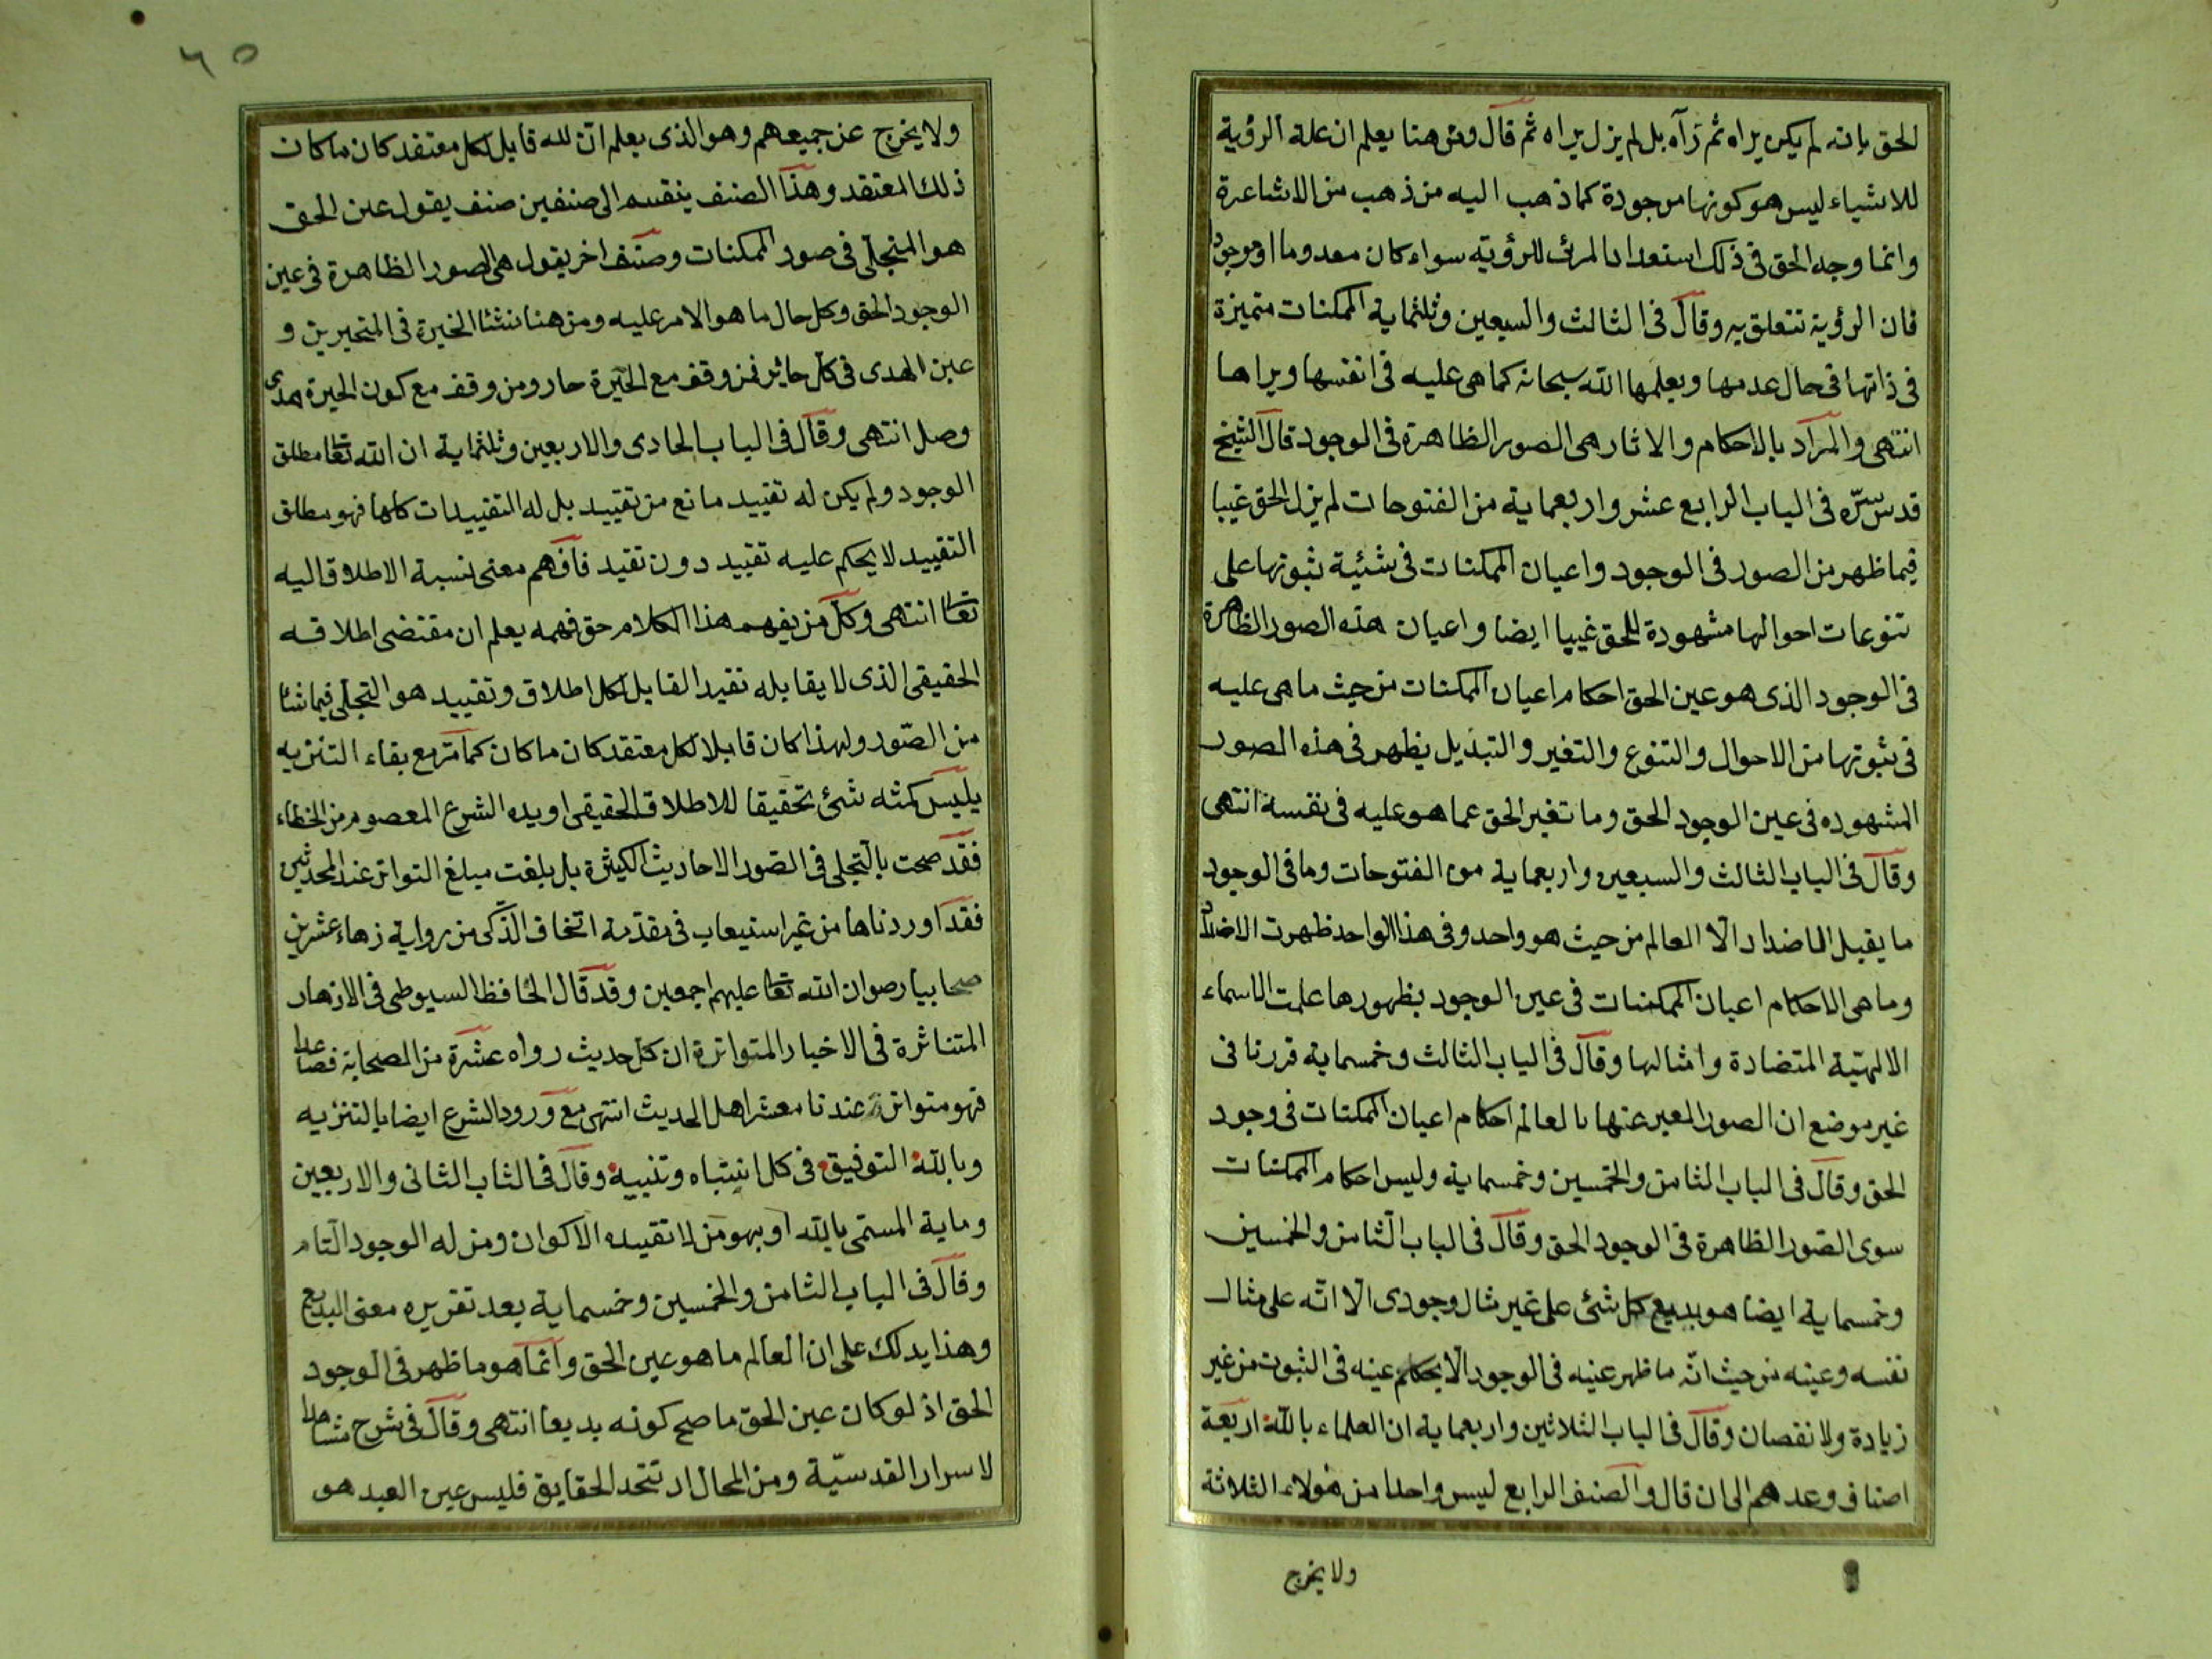 الحق بانه لم يكن يراه ثم رآه بل لم يزل يراه ثم قال ومن هنا يعلم ان علة الرؤية
للاشياء ليس هو كونها موجودة كما ذهب اليه من ذهب من الاشاعرة
وانما وجه الحق فى ذلك استعداد المرئى للرؤية سواء كان معدوما او موجودا
فان الرؤية تتعلق به وقال فى الثالث والسبعين وثلثماية الممكنات متميزة
فى ذاتها فى حال عدمها ويعلمها الله سبحانه كما هى عليه فى انفسها ويراها
انتهى والمراد بالاحكام والاثار هى الصور الظاهرة فى الوجود قال الشيخ
قدس سره فى الباب الرابع عشر واربعماية من الفتوحات لم يزل الحق غيبا
فيما ظهر من الصور فى الوجود واعيان الممكنات فى شئية ثبوتها على
تنوعات احوالها مشهودة للحق غيبا ايضا واعيان هذه الصور الظاهرة
فى الوجود الذى هو عين الحق احكام اعيان الممكنات من حيث ما هى عليه
فى ثبوتها من الاحوال والتنوع والتغير والتبديل يظهر فى هذه الصور
المشهوده فى عين الوجود الحق وما تغير الحق عما هو عليه فى نفسه انتهى
وقال فى الباب الثالث والسبعين واربعماية من الفتوحات وما فى الوجود
ما يقبل الاضداد الا العالم من حيث هو واحد وفى هذا الواحد ظهرت الاضداد
وما هى الا احكام اعيان الممكنات فى عين الوجود بظهورها علمت الاسماء
الالهية المتضادة وامثالها وقال فى الباب الثالث وخمسماية قررنا فى
غير موضع ان الصور المعبر عنها بالعالم احكام اعيان الممكنات فى وجود
الحق وقال فى الباب الثامن والخمسين وخمسماية وليس احكام الممكنات
سوى الصور الظاهرة فى الوجود الحق وقال فى الباب الثامن والخمسين
وخمسماية ايضا هو بديع كل شئ على غير مثال وجودى الا انه على مثال
نفسه وعينه من حيث انه ما ظهر عينه فى الوجود الا بحكم عينه فى الثبوت من غير
زيادة ولا نقصان وقال فى الباب الثلاثين واربعماية ان العلماء بالله اربعة
اصناف وعدهم الى ان قال والصنف الرابع ليس واحدا من هؤلاء الثلاثة
ولا يخرج
٦٥
ولا يخرج عن جميعهم وهو الذى يعلم ان لله قابل لكل معتقد كان ما كان
ذلك المعتقد وهذا الصنف ينقسم الى صنفين صنف يقول عين الحق
هو المتجلى فى صور الممكنات وصنف اخر يقول هى الصور الظاهرة فى عين
الوجود الحق وكل حال ما هو الامر عليه ومن هنا ننشئا الخيرة فى المتحيرين و
عين الهدى فى كل حائر فمن وقف مع الحيرة حار ومن وقف مع كون الحيرة هدى
وصل انتهى وقال فى الباب الحادى والاربعين وثلثماية ان الله تعا مطلق
الوجود ولم يكن له تقييد مانع من تقييد بل له التقييدات كلها فهو مطلق
التقييد لا يحكم عليه تقييد دون تقيد فافهم معنى نسبة الاطلاق اليه
تعا انتهى وكل من يفهم هذا الكلام حق فهمه يعلم ان مقتضى اطلاقه
الحقيقى الذى لا يقابله تقيد القابل لكل اطلاق وتقييد هو التجلى فيما شا
من الصور ولهذا كان قابلا لكل معتقد كان ما كان كما مر مع بقاء التنزيه
بليس كمثه شئ تحقيقا للاطلاق الحقيقى اويده الشرع المعصوم من الخطاء
فقد صحت بالتجلى فى الصور الاحاديث الكثيرة بل بلغت مبلغ التواتر عند المحدثين
فقد اوردناها من غير استيعاب فى مقدمة اتخاف الذكى من رواية زهاء عشرين
صحابيا رصوان الله تعا عليهم اجمعين وقد قال الحافظ السيوطى فى الازهار
المتناثرة فى الاخبار المتواترة ان كل حديث رواه عشرة من الصحابة فصاعدا
فهو متواتر عندنا معشر اهل الحديث انتهى مع ورود الشرع ايضا بالتنزيه
وبالله التوفيق فى كل انتباه وتنبيه وقال فى الثاب الثانى والاربعين
وماية المستمى بالله او بهو من لا تقييده الاكوان ومن له الوجود التام
وقال فى الباب الثامن والخمسين وخسماية بعد تقريره معنى البديع
وهذا يدلك على ان العالم ما هو عين الحق وانما هو ما ظهر فى الوجود
الحق اذ لو كان عين الحق ما صح كونه بديعا انتهى وقال فى شرح مشاهد
لاسرار القدسية ومن المحال ان تتحد الحقايق فليس عين العبد هو